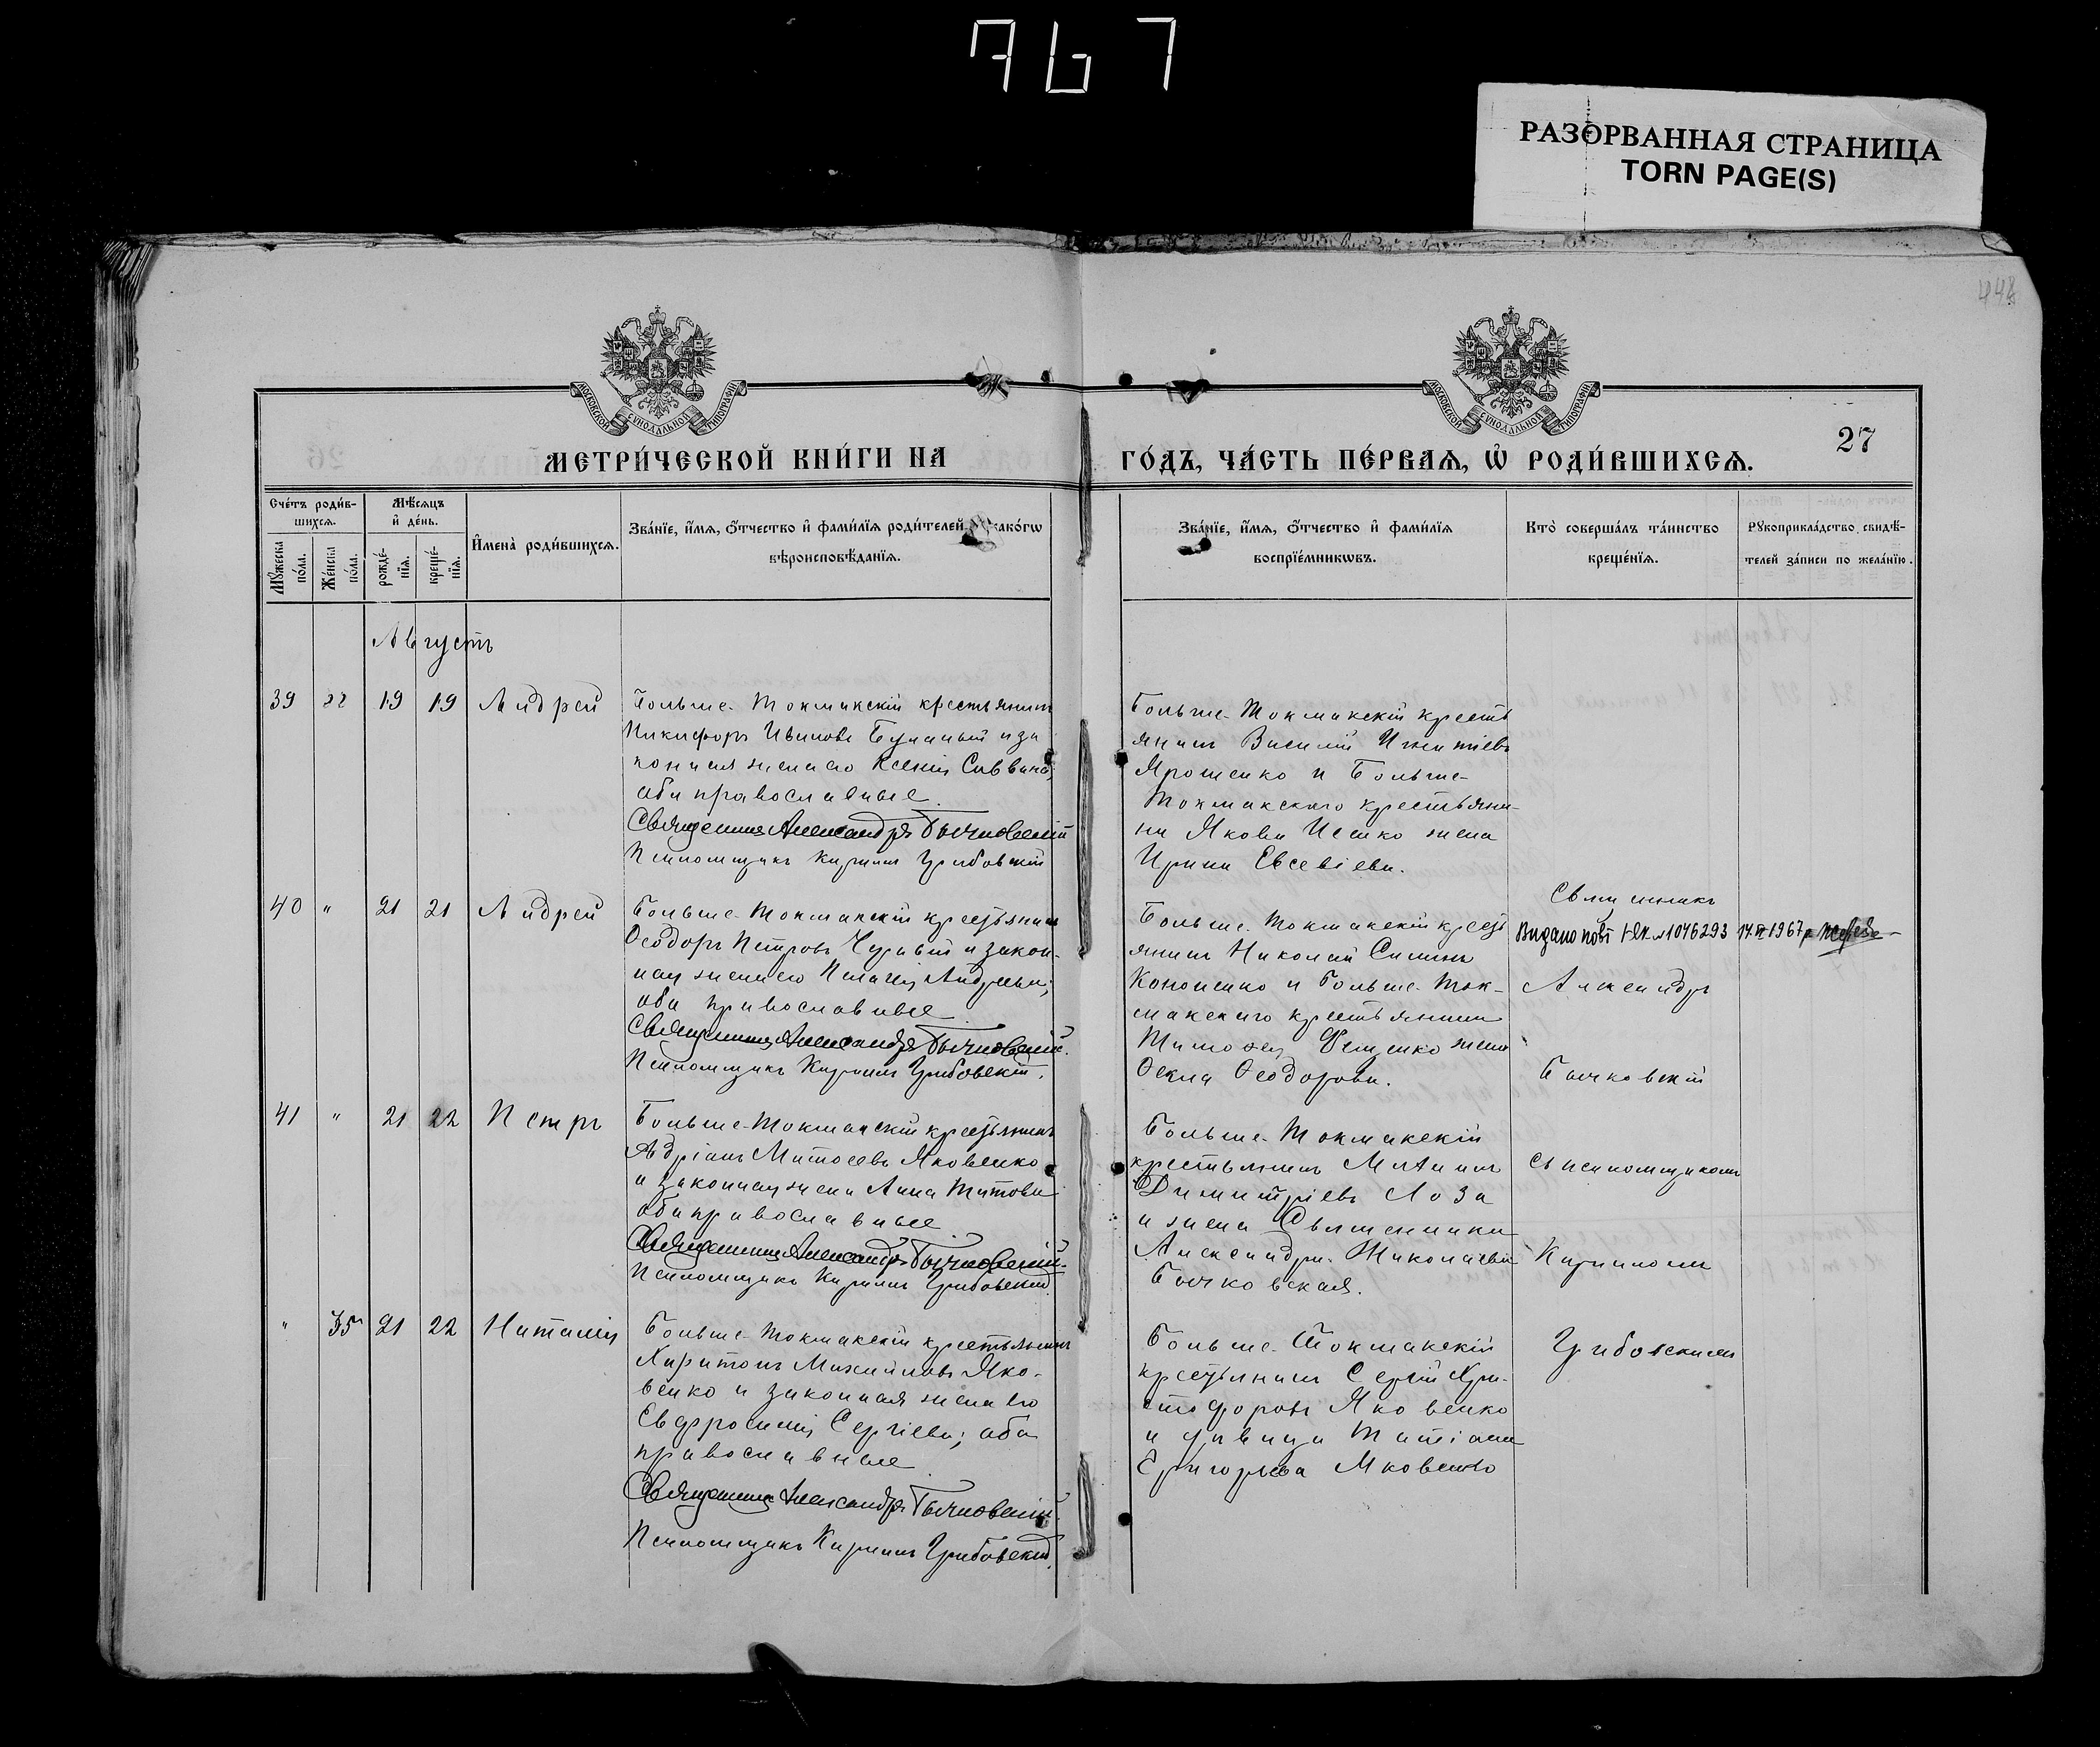 767
РАЗОРВАННАЯ СТРАНИЦА
TORN PAGE(S)
448
МОСКОВСКОЙ СѴНОДАЛЬНОЙ ТИПОГРАФІИ
МОСКОВСКОЙ СѴНОДАЛЬНОЙ ТИПОГРАФІИ
27
МЕТРИ́ЧЕСКОЙ КНИ́ГИ НА
ГО́ДЪ, ЧА́СТЬ ПЕ́РВАѦ, Ѡ҆ РОДИ́ВШИХСѦ.
Сче́тъ роди́в-
шихсѧ.
Мꙋжеска по́ла.
Же́нска по́ла.
Мѣ́сѧцъ
и҆ де́нь.
рожде́-нїѧ.
креще́-нїѧ.
И҆мена̀ роди́вшихсѧ.
Зва́нїе, и҆́мѧ, ѻ҆́тчество и҆ фами́лїѧ роди́телей како́гѡ
вѣроисповѣ́данїѧ.
Зва́нїе, и҆́мѧ, ѻ҆́тчество и҆ фами́лїѧ
воспрїе́мникѡвъ.
Кто̀ соверша́лъ та́инство
креще́нїѧ.
Рꙋкоприкла́дство свидѣ́-
телей за́писи по жела́нїю.
Августъ
39 " 19 19 Андрей
Больше-Токмакскій крестьянинъ
Никифоръ Ивановъ и за
конная жена его Ксенія Саввина,
оба православные.
Священникъ Александръ Бычковскій
Псаломщикъ Кириллъ Грибовскій
Больше-Токмакскій кресть
янинъ Василій Игнатіевъ
Ярошенко и Больше-
Токмакскаго крестьяни-
на Якова жена
Ирина Евсевіева.
40 " 21 21 Андрей
Больше-Токмакскій крестьянинъ
Ѳеодоръ Петровъ и закон-
ная жена его Андреева;
оба православные
Священникъ Александръ Бычковскій.
Псаломщикъ Кириллъ Грибовскій.
Больше-Токмакскій кресть
янинъ Николай
Кононенко и Больше-Ток-
макскаго крестьянина
Тимоѳея жена
Ѳекла Ѳеодорова.
Священникъ
Видано повт № 1046293 14.II 1967р
Александръ
Бычковскій
41 " 21 22 Петръ
Больше-Токмакскій крестьянинъ
Адріанъ Матѳеевъ Яковенко
и законная жена Анна Титова
оба православные
Священникъ Александръ Бычковскій.
Псаломщикъ Кириллъ Грибовскій.
Больше-Токмакскій
крестьянинъ
Димитріевъ Лоза
и жена Священника
Александра Николаева
Бычковская.
съ псаломщикомъ
Кирилломъ
" 35 21 22 Наталія
Больше-Токмакскій крестьянинъ
Харитонъ Михайловъ Яко-
венко и законная жена его
Евфросинія Сергіева; оба
православные
Священникъ Александръ Бычковскій.
Псаломщикъ Кириллъ Грибовскій.
Больше-Токмакскій
крестьянинъ Сергій Хри-
стофоровъ Яковенко
и дѣвица Татіана
Григорьева Яковенко
Грибовскимъ